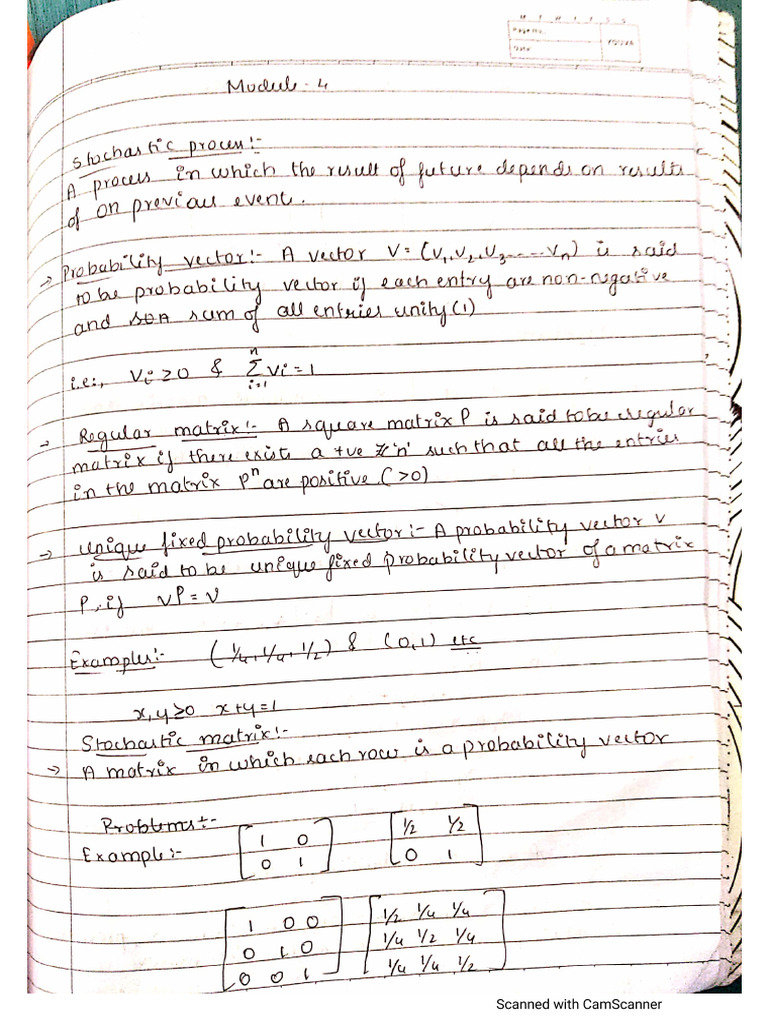 Page No.
Date
YOUVA
Module - 4
Stochastic process:-
A process in which the result of future depends on results
of on previous event.
→ Probability vector:- A vector V = (V₁, V₂, V₃, ..... Vₙ) is said
to be probability vector if each entry are non-negative
and sum of all entries unity (1)
i.e., Vi ≥ 0 & Σⁿᵢ₌₁ Vi = 1
→ Regular matrix:- A square matrix P is said to be regular
matrix if there exist a +ve 'n' such that all the entries
in the matrix Pⁿ are positive (>0)
→ Unique fixed probability vector:- A probability vector v
is said to be unique fixed probability vector of a matrix
P, if vP = v
Examples:- (1/4, 1/4, 1/2) & (0,1) etc
x, y ≥ 0 x+y = 1
Stochastic matrix:-
→ A matrix in which each row is a probability vector
Problems:-
Example:-
1 0
0 1
1/2 1/2
0 1
1 0 0
0 1 0
0 0 1
1/2 1/4 1/4
1/4 1/2 1/4
1/4 1/4 1/2
Scanned with CamScanner